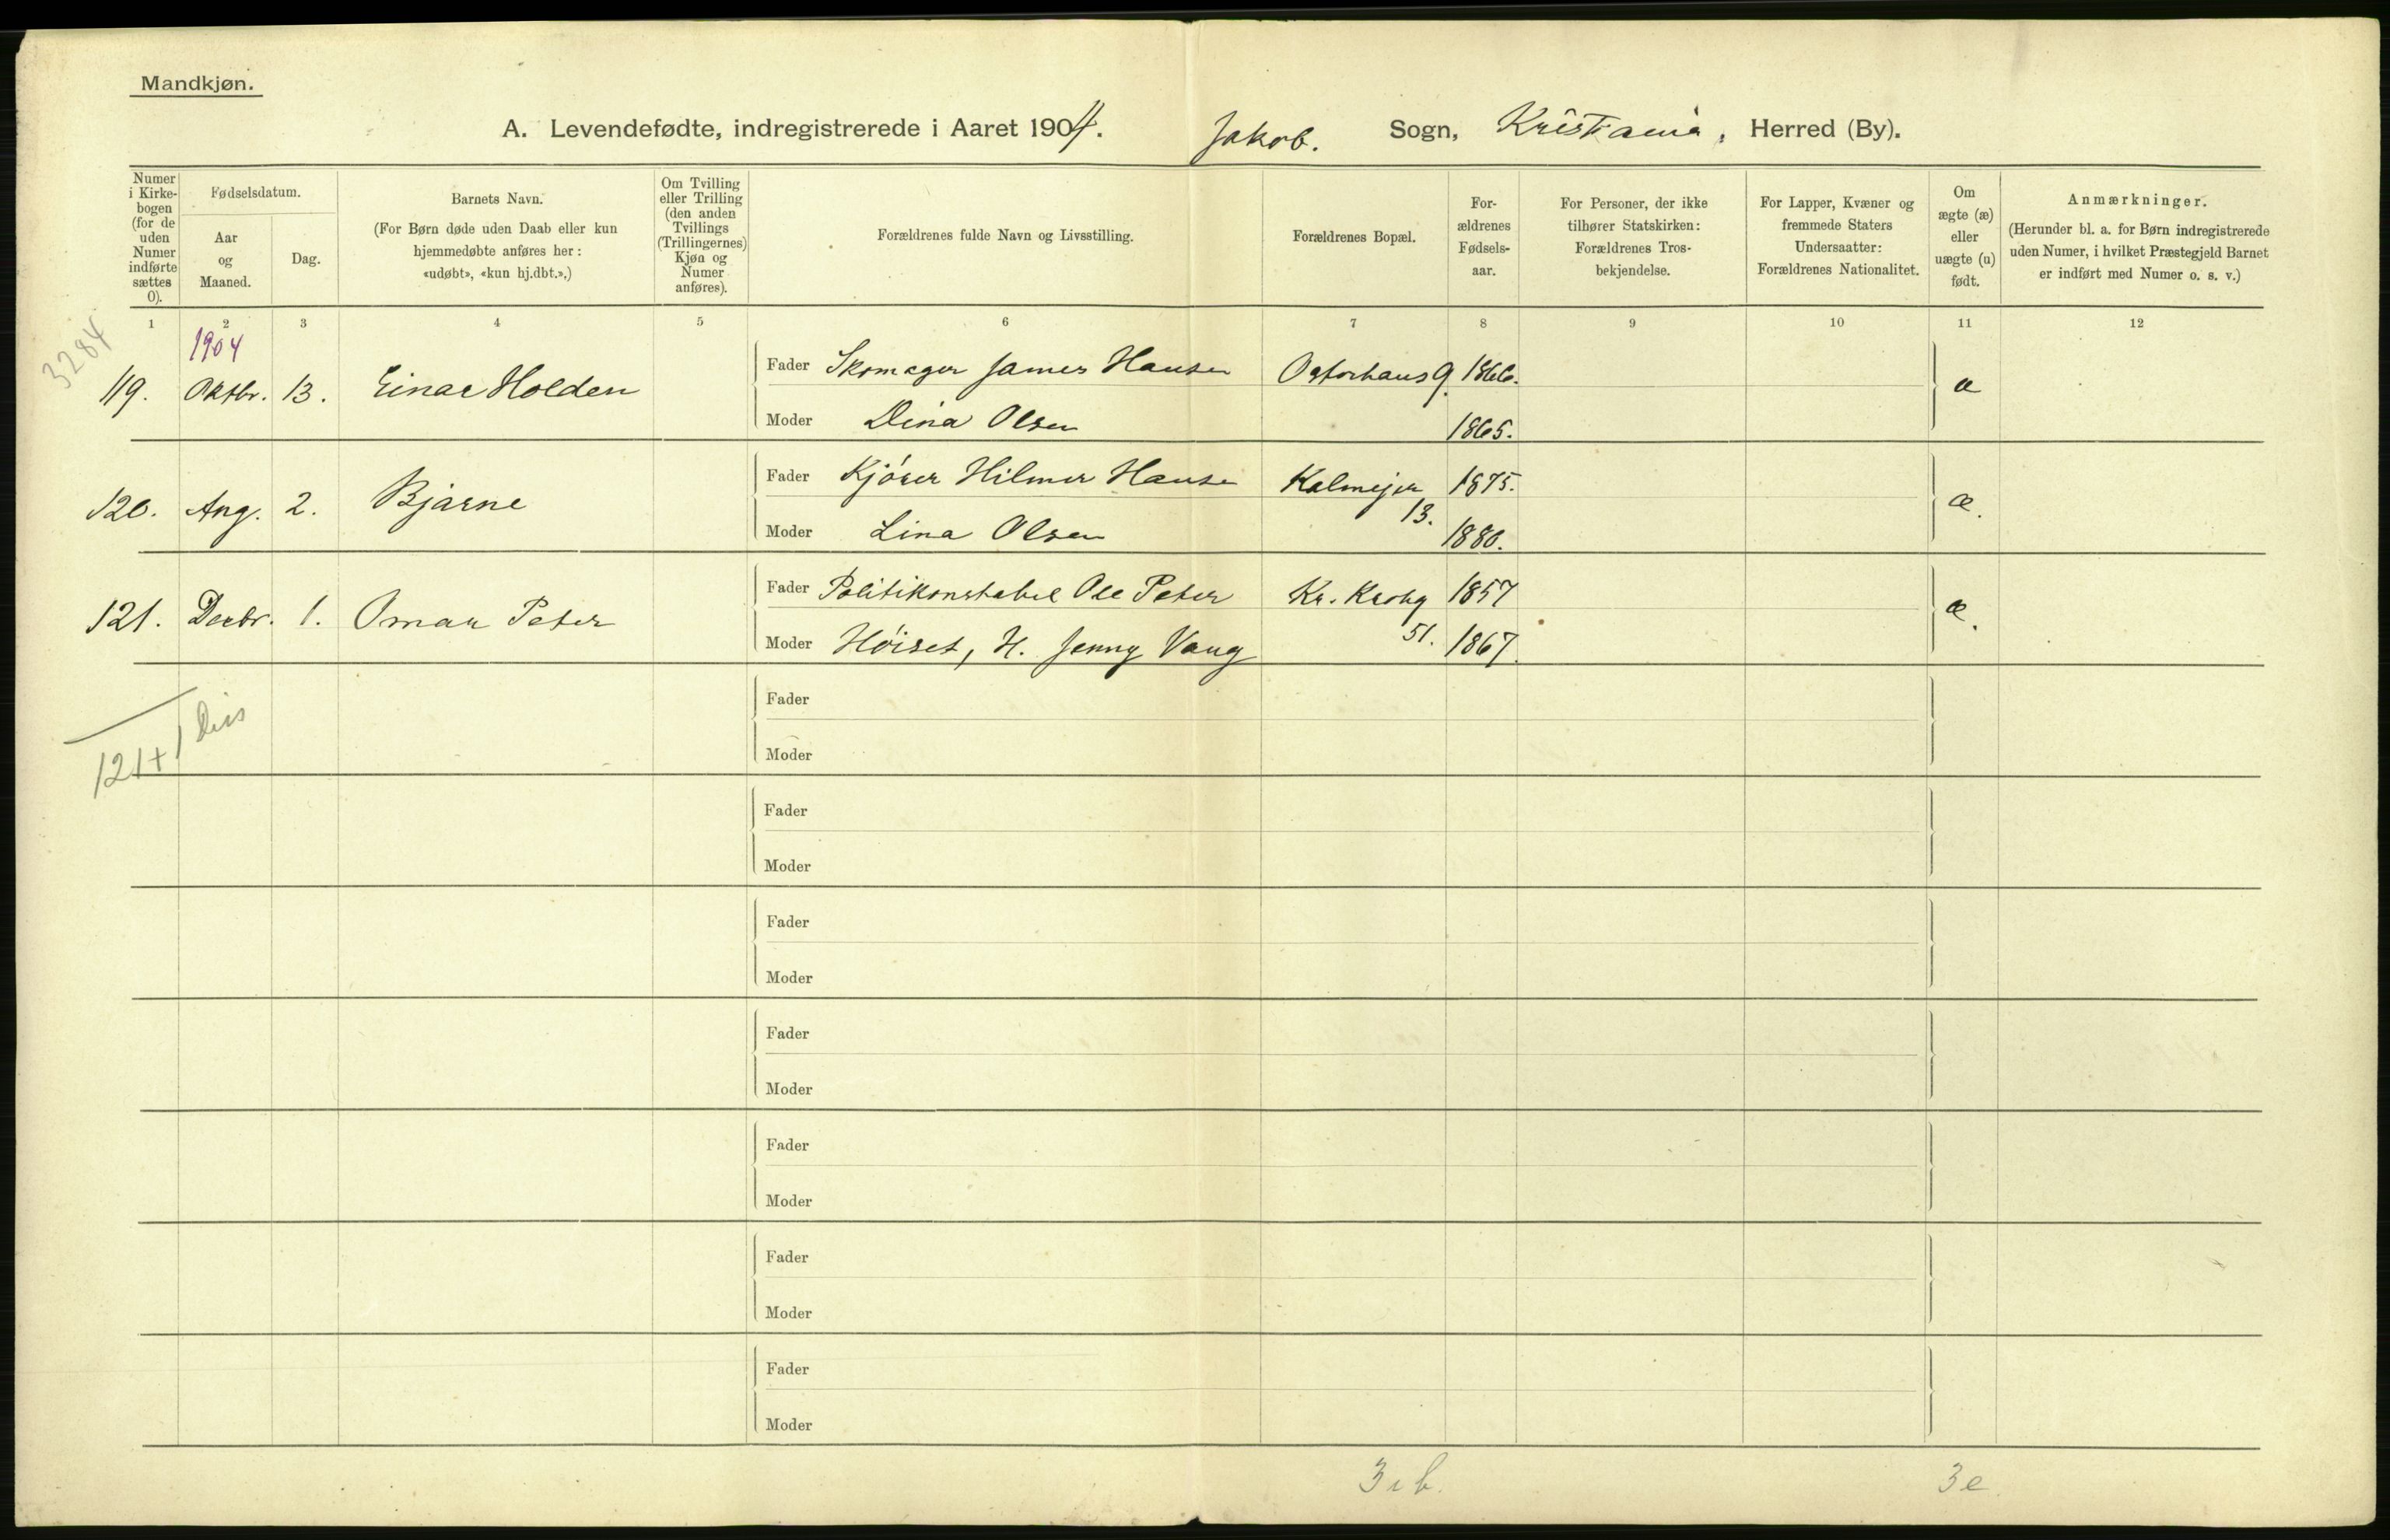 Mandkjøn.
A. Levendefødte, indregistrerede i Aaret 1904. Jakob. Sogn, Kristiania, Herred (By).
Numer i Kirke-bogen (for de uden Numer indførte sættes 0).
Fødselsdatum.
Aar og Maaned.
Dag.
Barnets Navn.
(For Børn døde uden Daab eller kun
hjemmedøbte anføres her:
«udøbt», «kun hj.dbt.»,)
Om Tvilling
eller Trilling
(den anden
Tvillings
(Trillingernes)
Kjøn og
Numer
anføres).
Forældrenes fulde Navn og Livsstilling.
Forældrenes Bopæl.
For-
ældrenes
Fødsels-
aar.
For Personer, der ikke
tilhører Statskirken:
Forældrenes Tros-
bekjendelse.
For Lapper, Kvæner og
fremmede Staters
Undersaatter:
Forældrenes Nationalitet.
Om
ægte (æ)
eller
uægte (u)
født.
Anmærkninger.
(Herunder bl. a. for Børn indregistrerede
uden Numer, i hvilket Præstegjeld Barnet
er indført med Numer o. s. v.)
1 2 3 4 5 6 7 8 9 10 11 12
3284
1904
119. Oktbr. 13. Einar Holden Fader Skomager James Hansen Osterhausg. 1866. æ
Moder Dina Olsen 1865.
120. Aug. 2. Bjarne Fader Kjører Hilmer Hansen Kalmejer 13. 1875. æ.
Moder Lina Olsen 1880.
121. Decbr. 1. Omar Peter Fader Politikonstabel Ole Peter Kr. Krohg 51. 1857 æ.
Moder Høiset, H. Jenny Vang 1867.
121+1
Fader
Moder
Fader
Moder
Fader
Moder
Fader
Moder
Fader
Moder
Fader
Moder
Fader
Moder
3 i b.
3 e